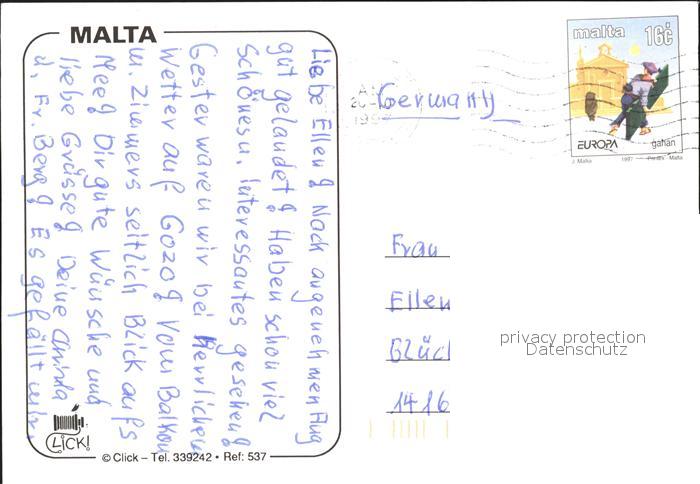 MALTA
Liebe Ellen! Nach angenehmen Flug
gut gelandet! Haben schon viel
Schönes u. Interessantes gesehen!
Gestern waren wir bei herrlichem
Wetter auf Gozo! Vom Balkon
u. Zimmers seitlich Blick aufs
Meer! Dir gute Wünsche und
liebe Grüsse! Deine
u. Fr. Berg! Es gefällt uns
CLICK!
© Click – Tel. 339242 • Ref: 537
Germany
malta 16c
EUROPA gahan
J. Malta 1997 Printex Malta
Frau
Ellen
Glück
1416
privacy protection
Datenschutz